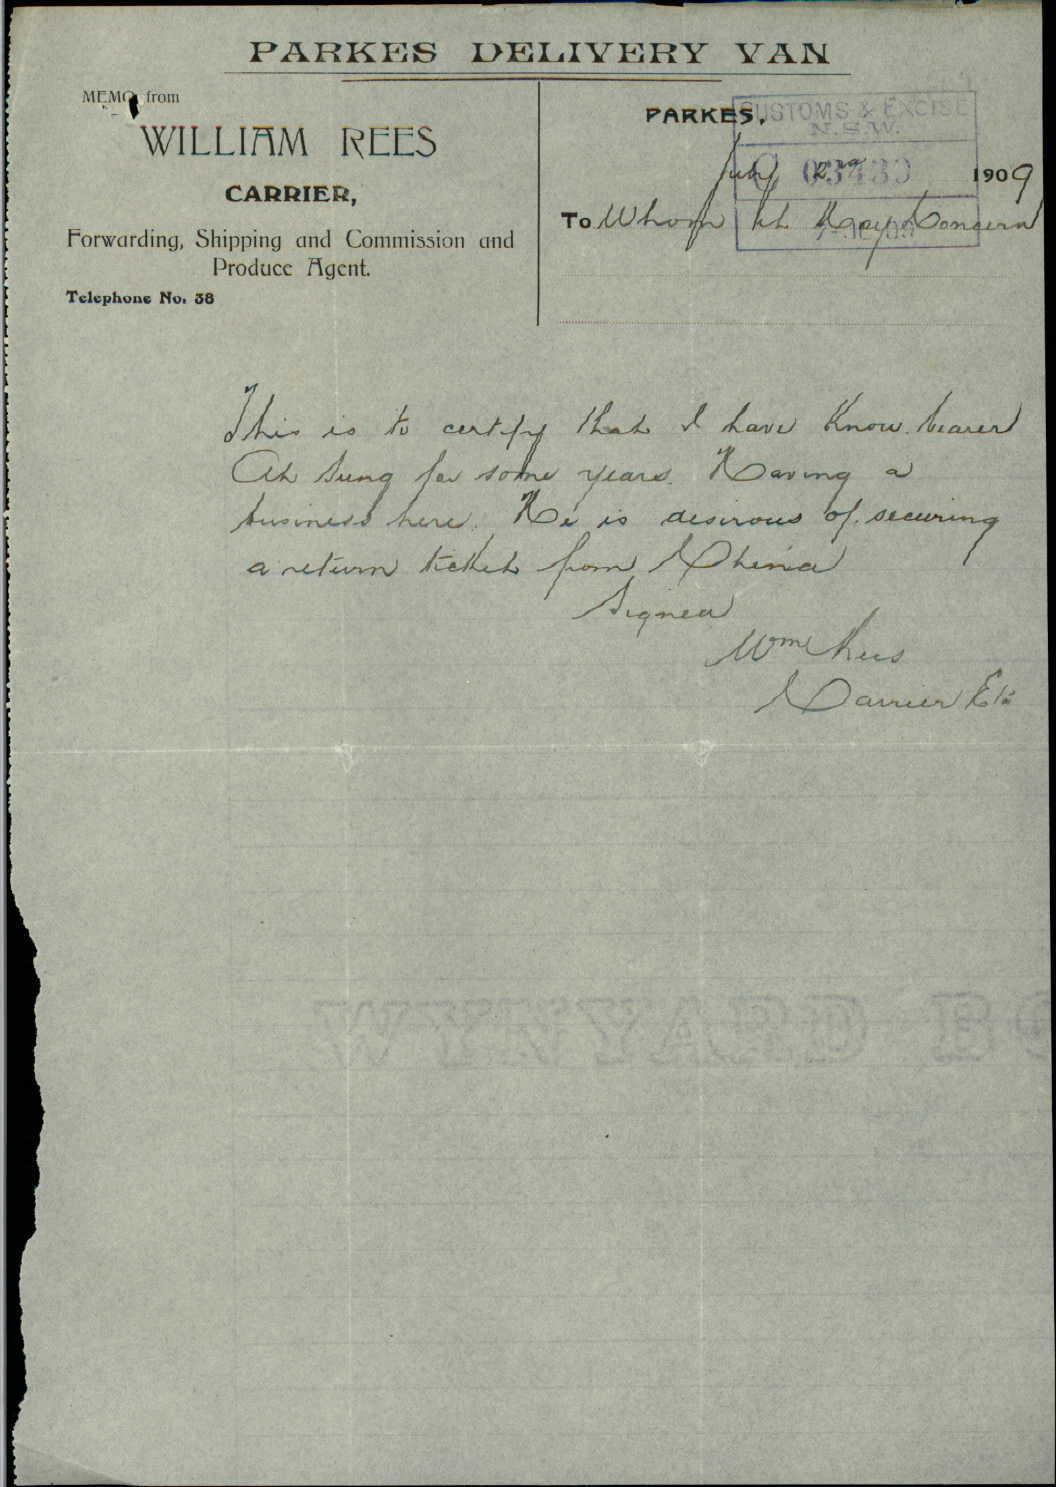 PARKES DELIVERY VAN
MEMO. from
WILLIAM REES
CARRIER,
Forwarding, Shipping and Commission and
Produce Agent.
Telephone No. 38
PARKES,
CUSTOMS & EXCISE
N.S.W.
July 2nd 1909
C 03430
To Whom it May Concern
This is to certify that I have Know bearer
Ah Sung for some years. Having a
business here. He is desirous of securing
a return ticket from China
Signed
Wm Rees
Carrier Etc